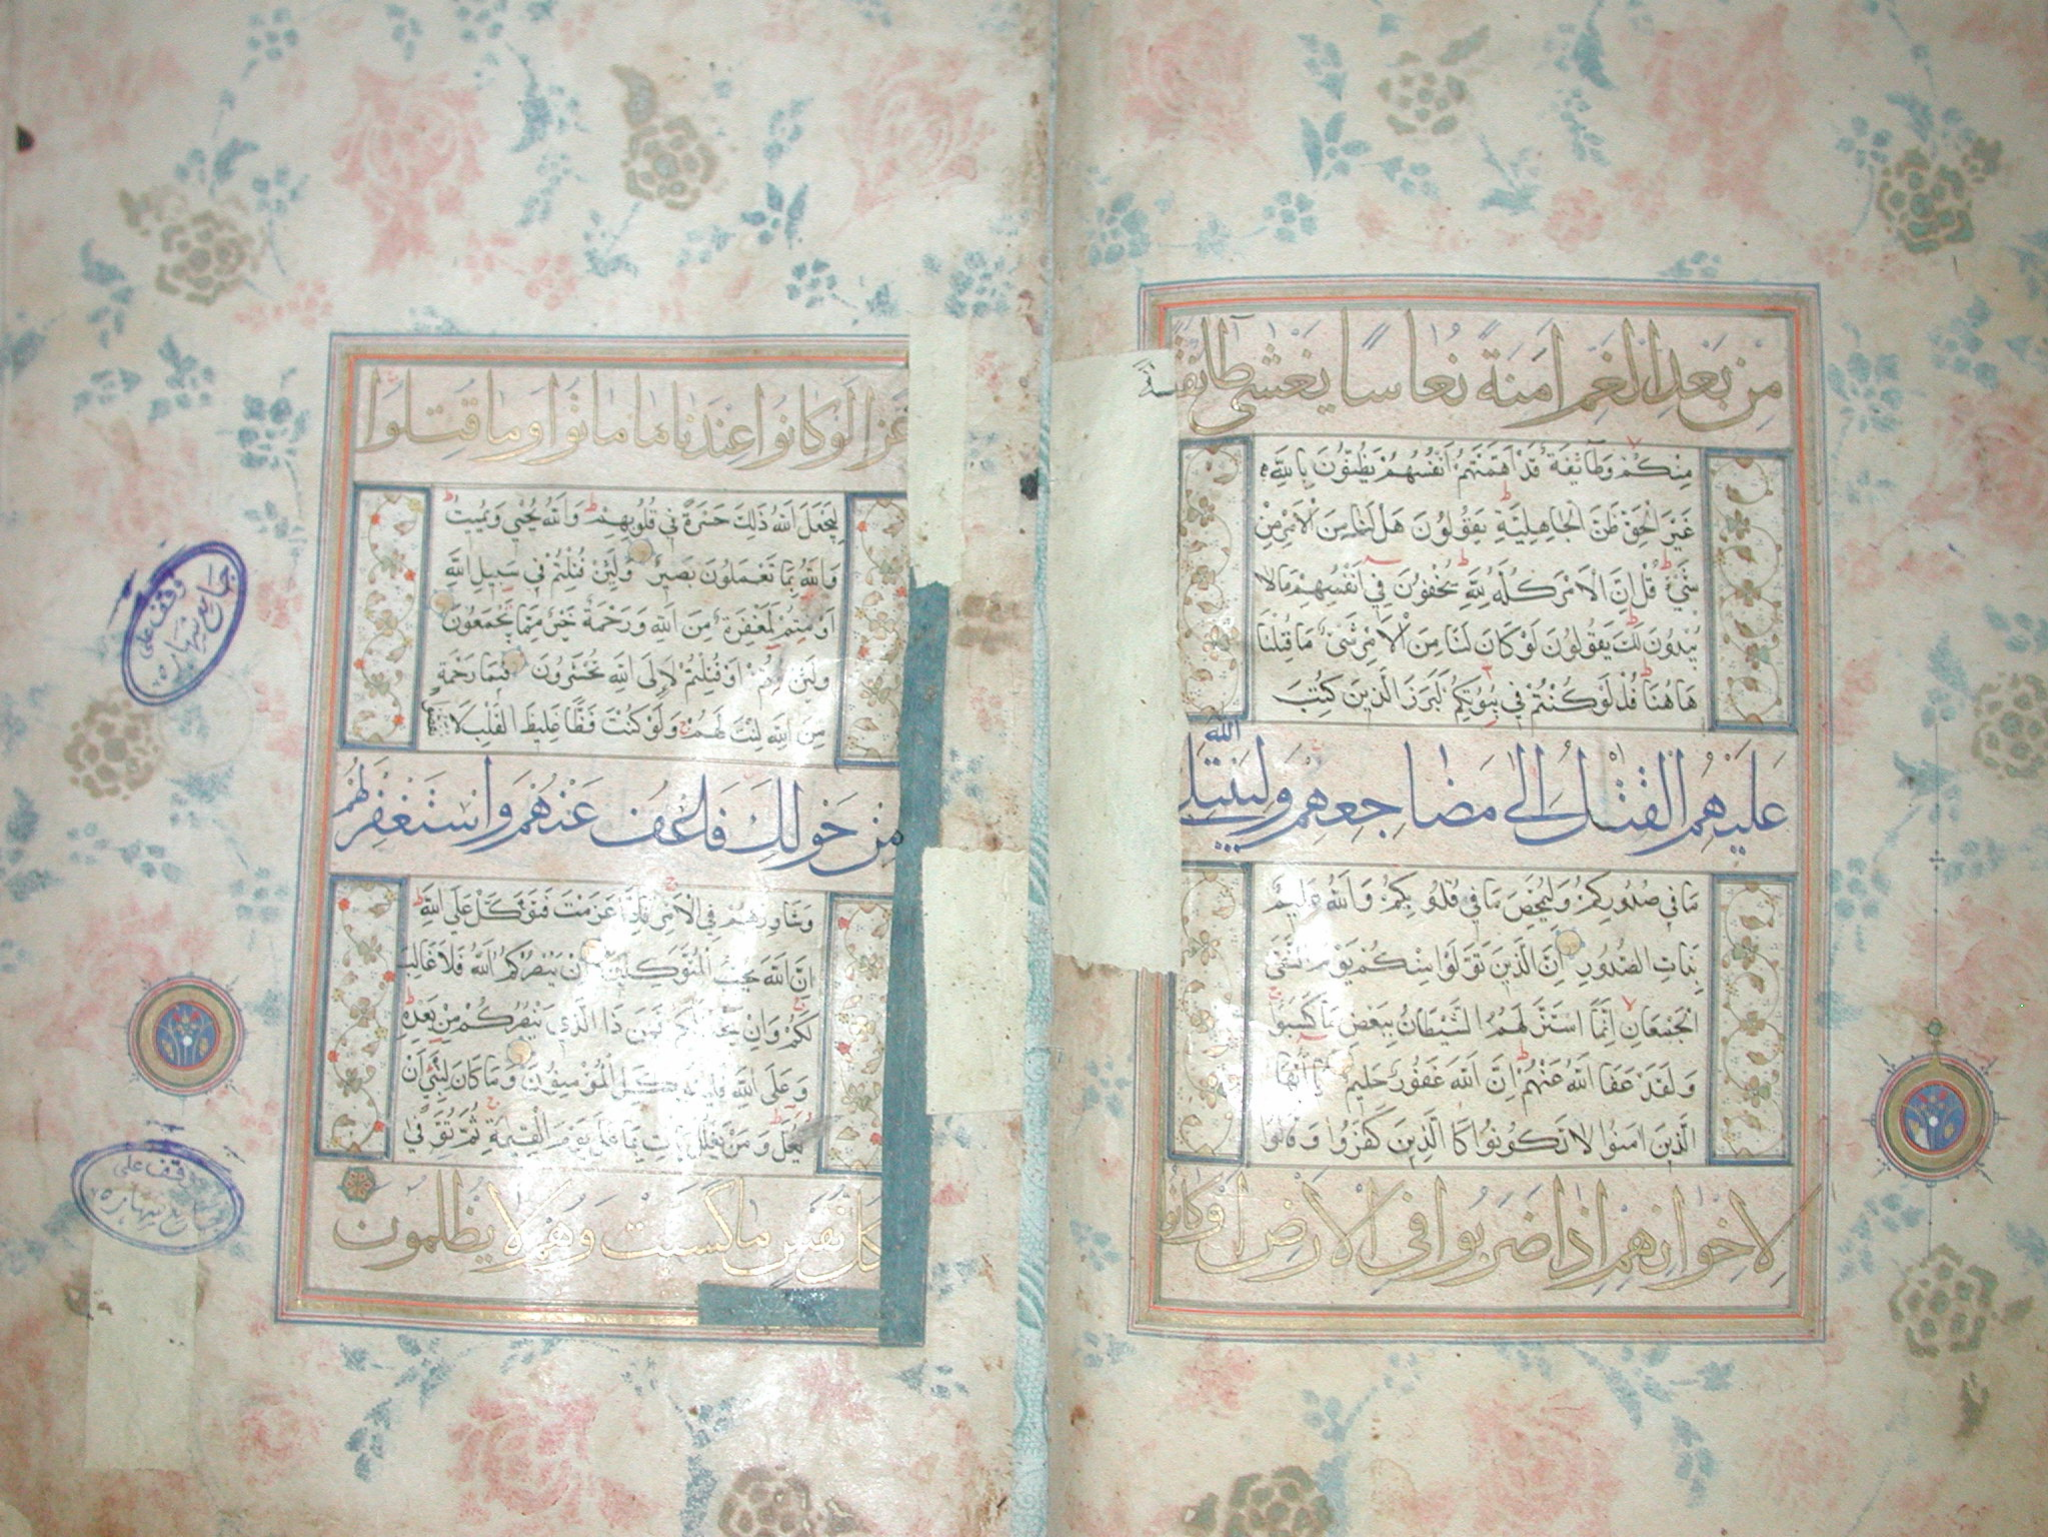 مِنْ بَعْدِ الْغَمِّ اَمَنَةً نُعَاسًا يَغْشٰى طَائِفَةً
مِنْكُمْ وَطَآئِفَةٌ قَدْ اَهَمَّتْهُمْ اَنْفُسُهُمْ يَظُنُّونَ بِاللّٰهِ
غَيْرَ الْحَقِّ ظَنَّ الْجَاهِلِيَّةِ يَقُولُونَ هَلْ لَنَا مِنَ الْاَمْرِ مِنْ
شَيْءٍ قُلْ اِنَّ الْاَمْرَ كُلَّهُ لِلّٰهِ يُخْفُونَ فِي اَنْفُسِهِمْ مَا لَا
يُبْدُونَ لَكَ يَقُولُونَ لَوْ كَانَ لَنَا مِنَ الْاَمْرِ شَيْءٌ مَا قُتِلْنَا
هَاهُنَا قُلْ لَوْ كُنْتُمْ فِي بُيُوتِكُمْ لَبَرَزَ الَّذِينَ كُتِبَ
عَلَيْهِمُ الْقَتْلُ اِلٰى مَضَاجِعِهِمْ وَلِيَبْتَلِيَ اللّٰه
مَا فِي صُدُورِكُمْ وَلِيُمَحِّصَ مَا فِي قُلُوبِكُمْ وَاللّٰهُ عَلِيمٌ
بِذَاتِ الصُّدُورِ اِنَّ الَّذِينَ تَوَلَّوْا مِنْكُمْ يَوْمَ الْتَقَى
الْجَمْعَانِ اِنَّمَا اسْتَزَلَّهُمُ الشَّيْطَانُ بِبَعْضِ مَا كَسَبُوا
وَلَقَدْ عَفَا اللّٰهُ عَنْهُمْ اِنَّ اللّٰهَ غَفُورٌ حَلِيمٌ يَا اَيُّهَا
الَّذِينَ اٰمَنُوا لَا تَكُونُوا كَالَّذِينَ كَفَرُوا وَقَالُوا
لِاِخْوَانِهِمْ اِذَا ضَرَبُوا فِي الْاَرْضِ اَوْ كَانُوا
غُزًّا لَوْ كَانُوا عِنْدَنَا مَا مَاتُوا وَمَا قُتِلُوا
لِيَجْعَلَ اللّٰهُ ذٰلِكَ حَسْرَةً فِي قُلُوبِهِمْ وَاللّٰهُ يُحْيِي وَيُمِيتُ
وَاللّٰهُ بِمَا تَعْمَلُونَ بَصِيرٌ وَلَئِنْ قُتِلْتُمْ فِي سَبِيلِ اللّٰهِ
اَوْ مُتُّمْ لَمَغْفِرَةٌ مِنَ اللّٰهِ وَرَحْمَةٌ خَيْرٌ مِمَّا يَجْمَعُونَ
وَلَئِنْ مُتُّمْ اَوْ قُتِلْتُمْ لَاِلَى اللّٰهِ تُحْشَرُونَ فَبِمَا رَحْمَةٍ
مِنَ اللّٰهِ لِنْتَ لَهُمْ وَلَوْ كُنْتَ فَظًّا غَلِيظَ الْقَلْبِ لَا
مِنْ حَوْلِكَ فَاعْفُ عَنْهُمْ وَاسْتَغْفِرْ لَهُمْ
وَشَاوِرْهُمْ فِي الْاَمْرِ فَاِذَا عَزَمْتَ فَتَوَكَّلْ عَلَى اللّٰهِ
اِنَّ اللّٰهَ يُحِبُّ الْمُتَوَكِّلِينَ اِنْ يَنْصُرْكُمُ اللّٰهُ فَلَا غَالِبَ
لَكُمْ وَاِنْ يَخْذُلْكُمْ فَمَنْ ذَا الَّذِي يَنْصُرُكُمْ مِنْ بَعْدِهِ
وَعَلَى اللّٰهِ فَلْيَتَوَكَّلِ الْمُؤْمِنُونَ وَمَا كَانَ لِنَبِيٍّ اَنْ
يَغُلَّ وَمَنْ يَغْلُلْ يَاْتِ بِمَا غَلَّ يَوْمَ الْقِيٰمَةِ ثُمَّ تُوَفّٰى
كُلُّ نَفْسٍ مَا كَسَبَتْ وَهُمْ لَا يُظْلَمُونَ
وقف على
جامع
وقف على
جامع